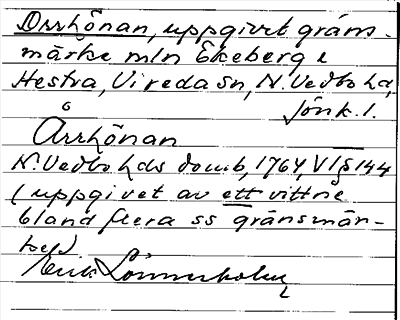 Orrhönan, uppgivet gräns-
märke mln Ekeberg o
Hestra, Vireda sn, N. Vedbo hd,
Jönk. l.
Årrhönan
N. Vedbo hds domb, 1764, VI § 144
(uppgivet av ett vittne
bland flera ss gränsmär-
ke)
Erik Lönnerholm